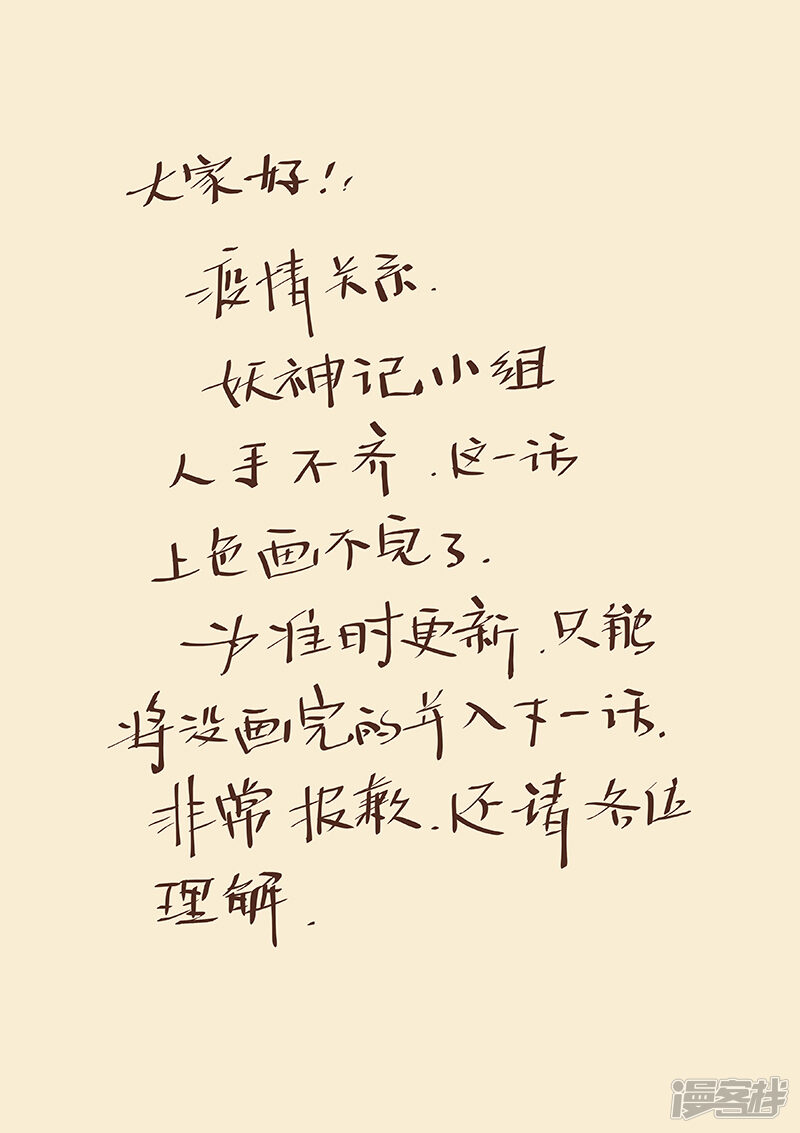 大家好!!
疫情关系.
妖神记小组
人手不齐.这一话
上色画不完了.
为准时更新.只能
将没画完的并入下一话.
非常报歉.还请各位
理解.
漫客栈